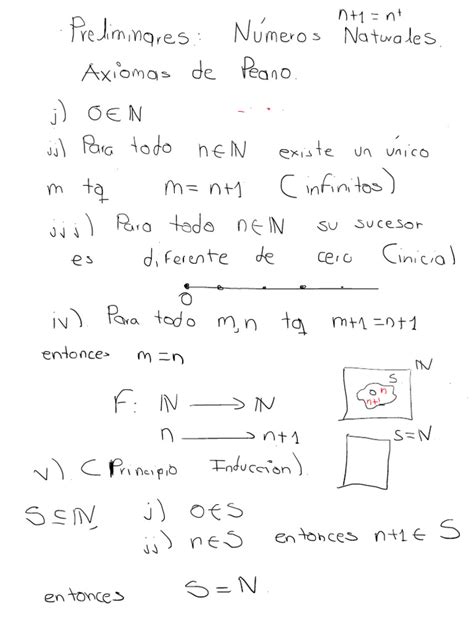 n+1 = n⁺
Preliminares: Números Naturales.
Axiomas de Peano.
i) 0∈ℕ
ii) Para todo n∈ℕ existe un único
m tq m = n+1 (infinitos)
iii) Para todo n∈ℕ su sucesor
es diferente de cero (inicial)
0
iv) Para todo m,n tq m+1 = n+1
entonces m = n
ℕ
S
0 n
n+1
F: ℕ → ℕ
n → n+1
S=ℕ
v) (Principio Inducción).
S⊆ℕ, i) 0∈S
ii) n∈S entonces n+1 ∈ S
entonces S = ℕ